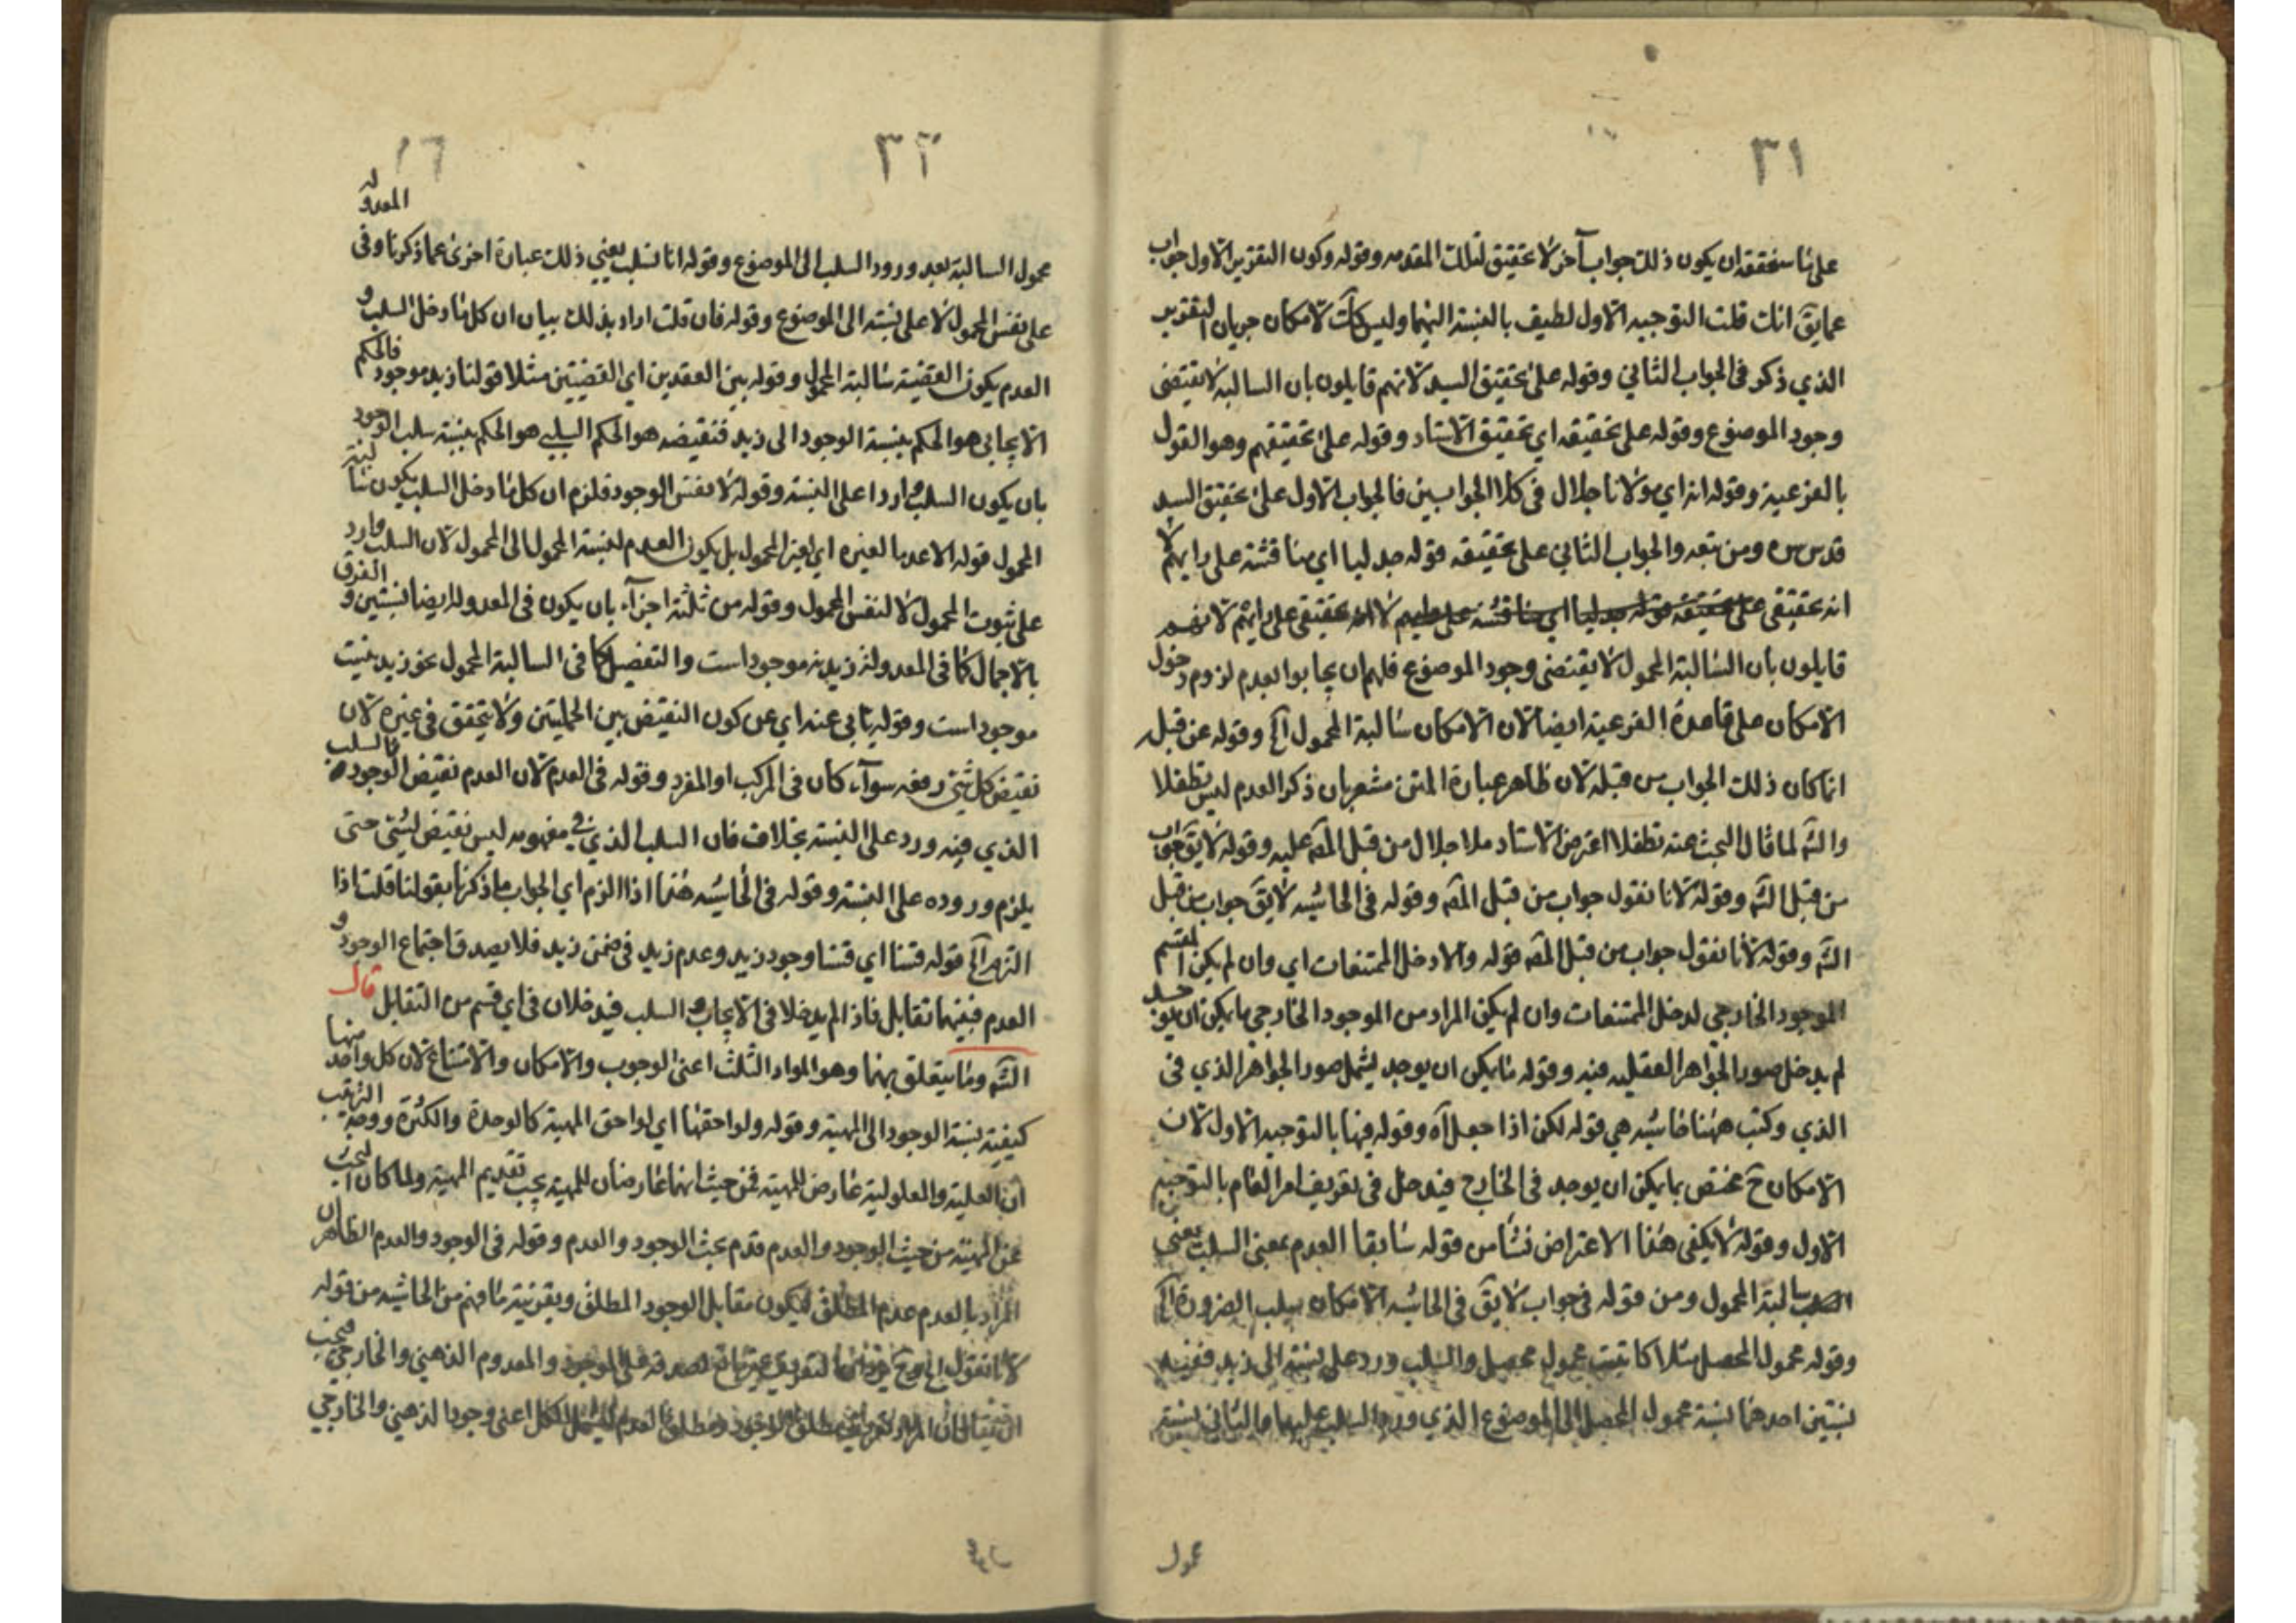 ٣١
على ما سنحققه ان يكون ذلك جواب آخر لا تحقيق لتلك المقدمه وقوله وكون التقرير الاول جواب
عما يق انك قلت التوجيه الاول لطيف بالنسبة اليهما وليس كك لامكان جريان التقرير
الذي ذكر فى الجواب الثاني وقوله على تحقيق السيد لانهم قايلون بان السالبة لا يقتضى
وجود الموضوع وقوله على تحقيقه اي تحقيق الاستاد وقوله على تحقيقهم وهو القول
بالفرعية وقوله انه اي مولانا جلال فى كلا الجوابين فالجواب الاول على تحقيق السيد
قدس سره ومن تبعه والجواب الثاني على تحقيقه قوله جدليا اي مناقشة على رايهم لا
انه تحقيقى على رايهم لانهم
قايلون بان السالبة المحمول لا يقتضى وجود الموضوع فلهم ان يجابوا بعدم لزوم دخول
الامكان على قاعدة الفرعية ايضا لان الامكان سالبة المحمول اخ وقوله عن قبل
انما كان ذلك الجواب من قبله لان ظاهر عبارة المتن مشعر بان ذكر العدم ليس تطفلا
والشه لما قال البحث عنه تطفلا اعترض الاستاد ملا جلال من قبل المصه عليه وقوله لا يق جواب
من قبل الشه وقوله لانا نقول جواب من قبل المصه وقوله فى الحاشيه لا يق جواب من قبل
الشه وقوله لانا نقول جواب من قبل المصه قوله والا دخل الممتنعات اي وان لم يكن المقسم
الموجود الخارجي لدخل الممتنعات وان لم يكن المراد من الموجود الخارجي ما يمكن ان يوجد
لم يدخل صور الجواهر العقليه فيه وقوله ما يمكن ان يوجد ليشمل صور الجواهر الذي فى
الذي وكتب ههنا حاشيه هي قوله لكن اذا جعل آه وقوله فيها بالتوجيه الاول لان
الامكان ح مختص بما يمكن ان يوجد فى الخارج فيدخل فى تعريف امر العام بالتوجيه
الاول وقوله لا يكفى هذا الاعتراض نشا من قوله سابقا العدم بمعنى السلب يعني
سالبة المحمول ومن قوله فى جواب لا يق فى الحاشيه الامكان سلب الضرورة اخ
وقوله محمول المحصل مثلا كاتب محمول محصل والسلب ورد على نسبته الى زيد ففيه
نسبتين احدهما نسبة محمول المحصل الى الموضوع الذي ورد السلب عليها والثاني نسبته
محمول
٣٢
١٦
محمول السالبة بعد ورود السلب الى الموضوع وقوله انا نسلب يعني ذلك عبارة اخرى عما ذكرنا وفى المعدوله
على نفس المحمول لا على نسبته الى الموضوع وقوله فان قلت اراد بذلك بيان ان كل ما دخل السلب و
العدم يكون القضية سالبة المحمول وقوله بين العقدين اي القضيتين مثلا قولنا زيد موجود فالحكم
الايجابي هو الحكم بنسبة الوجود الى زيد فنقيضه هو الحكم السلبي هو الحكم بنسبة سلب الوجود
بان يكون السلب واردا على النسبة وقوله لا نفس الوجود فلزم ان كل ما دخل السلب يكون سالبة
المحمول قوله الاعدما لغيره اي لغير المحمول بل يكون العدم لنسبة المحمول الى المحمول لان السلب وارد
على ثبوت المحمول لا لنفس المحمول وقوله من ثلثة اجزآء بان يكون فى المعدوله ايضا نسبتين و الفرق
بالاجمال كما فى المعدوله زيد نه موجود است والتفصيل كما فى السالبة المحمول نحو زيد نيست
موجود است وقوله يابى عنه اي عن كون النقيض بين الحمليتين ولا يتحقق فى غيره لان
نقيض كل شئ رفعه سوآء كان فى المركب او المفرد وقوله فى العدم لان العدم نقيض الوجود فالسلب
الذي فيه ورد على النسبة بخلاف فان السلب الذي فى مفهومه ليس نقيض لشئ حتى
يلزم وروده على النسبة وقوله فى الحاشيه هذا اذا الزم اي الجواب ما ذكرنا بقولنا قلت اذا
التزم اخ قوله قسما اي قسما وجود زيد وعدم زيد فى ضمن زيد فلا يصدق اجتماع الوجود و
العدم ففيهما تقابل فاذا لم يدخلا فى الايجاب والسلب فيدخلان فى اي قسم من التقابل قال
الشه وما يتعلق بهما وهو المواد الثلث اعنى الوجوب والامكان والامتناع لان كل واحد منها
كيفية نسبة الوجود الى المهية وقوله ولواحقها اي لواحق المهية كالوحدة والكثرة ووجه الترتيب
ان العلية والمعلولية عارض للمهية فمن حيث انهما عارضان للمهية يجب تقديم المهية ولما كان البحث
عن المهية من حيث الوجود والعدم قدم بحث الوجود والعدم وقوله فى الوجود والعدم الظاهر ان
المراد بالعدم عدم المطلق ليكون مقابل الوجود المطلق وبقرينة ما فهم من الحاشيه من قوله
لانا نقول الموجود والمعدوم الذهني والخارجي
ان يقال ان المراد مطلق الوجود ومطلق العدم ليشمل الكل اعنى وجود الذهني والخارجي